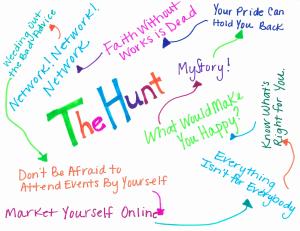 Weeding Out
the Bad Advice
Network! Network!
Network
Faith Without
Works is Dead
Your Pride Can
Hold You Back
The Hunt
My Story!
What Would Make
You Happy?
Know What's
Right for You.
Don't Be Afraid to
Attend Events By Yourself
Everything
Isn't for Everybody
Market Yourself Online